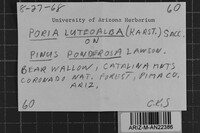 8-27-68 60
University of Arizona Herbarium
PORIA LUTEOALBA (KARST.) SACC.
ON
PINUS PONDEROSA LAWSON.
BEAR WALLOW, CATALINA MNTS
CORONADO NAT. FOREST, PIMA CO,
ARIZ.
60
ARIZ-M-AN22386